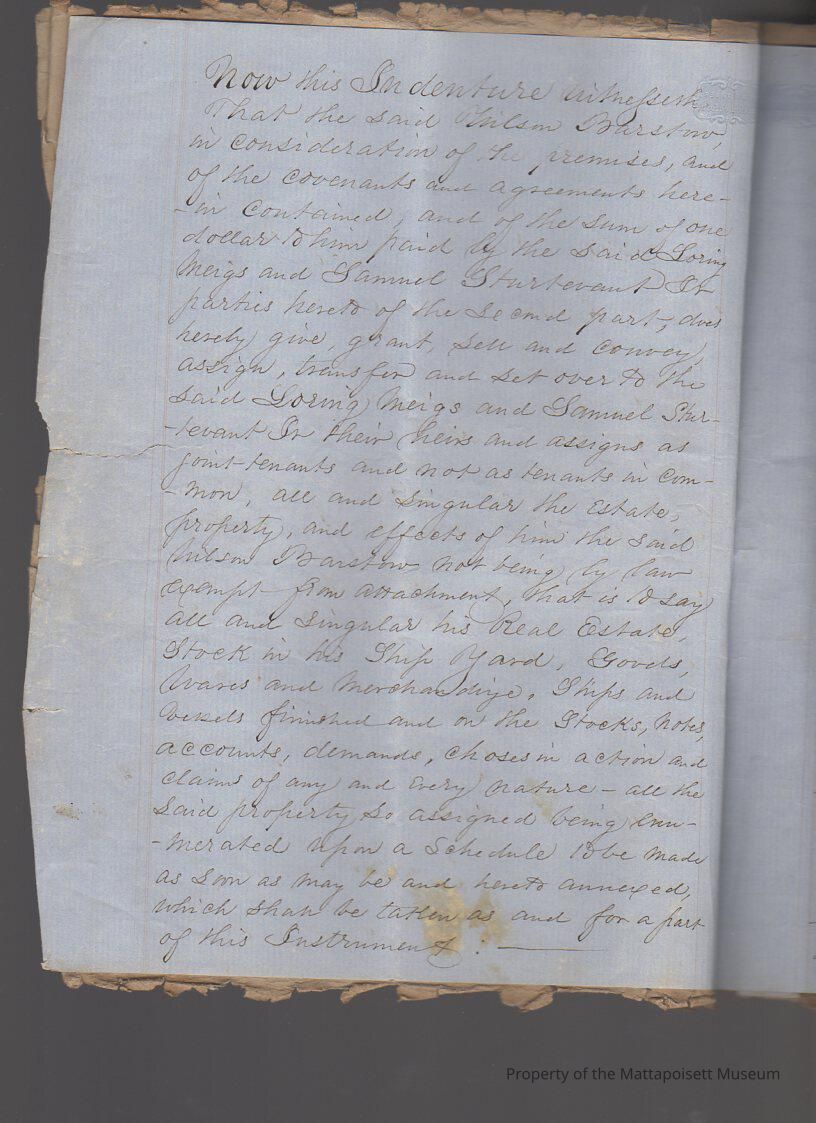 Now this Indenture witnesseth
That the said Wilson Barstow,
in consideration of the premises, and
of the covenants and agreements here-
-in contained, and of the sum of one
dollar to him paid by the said Loring
Meigs and Samuel Sturtevant Jr
parties hereto of the second part, does
hereby give, grant, sell and convey,
assign, transfer and set over to the
said Loring Meigs and Samuel Stur-
-tevant Jr their heirs and assigns as
joint-tenants and not as tenants in com-
-mon, all and singular the Estate,
property, and effects of him the said
Wilson Barstow not being by law
exempt from attachment, that is to say
all and singular his Real Estate,
Stock in his Ship Yard, Goods,
Wares and Merchandize, Ships and
vessels finished and on the Stocks, notes,
accounts, demands, choses in action and
claims of any and every nature - all the
said property so assigned being enu-
-merated upon a Schedule to be made
as soon as may be and hereto annexed,
which shall be taken as and for a part
of this Instrument : ——
Property of the Mattapoisett Museum